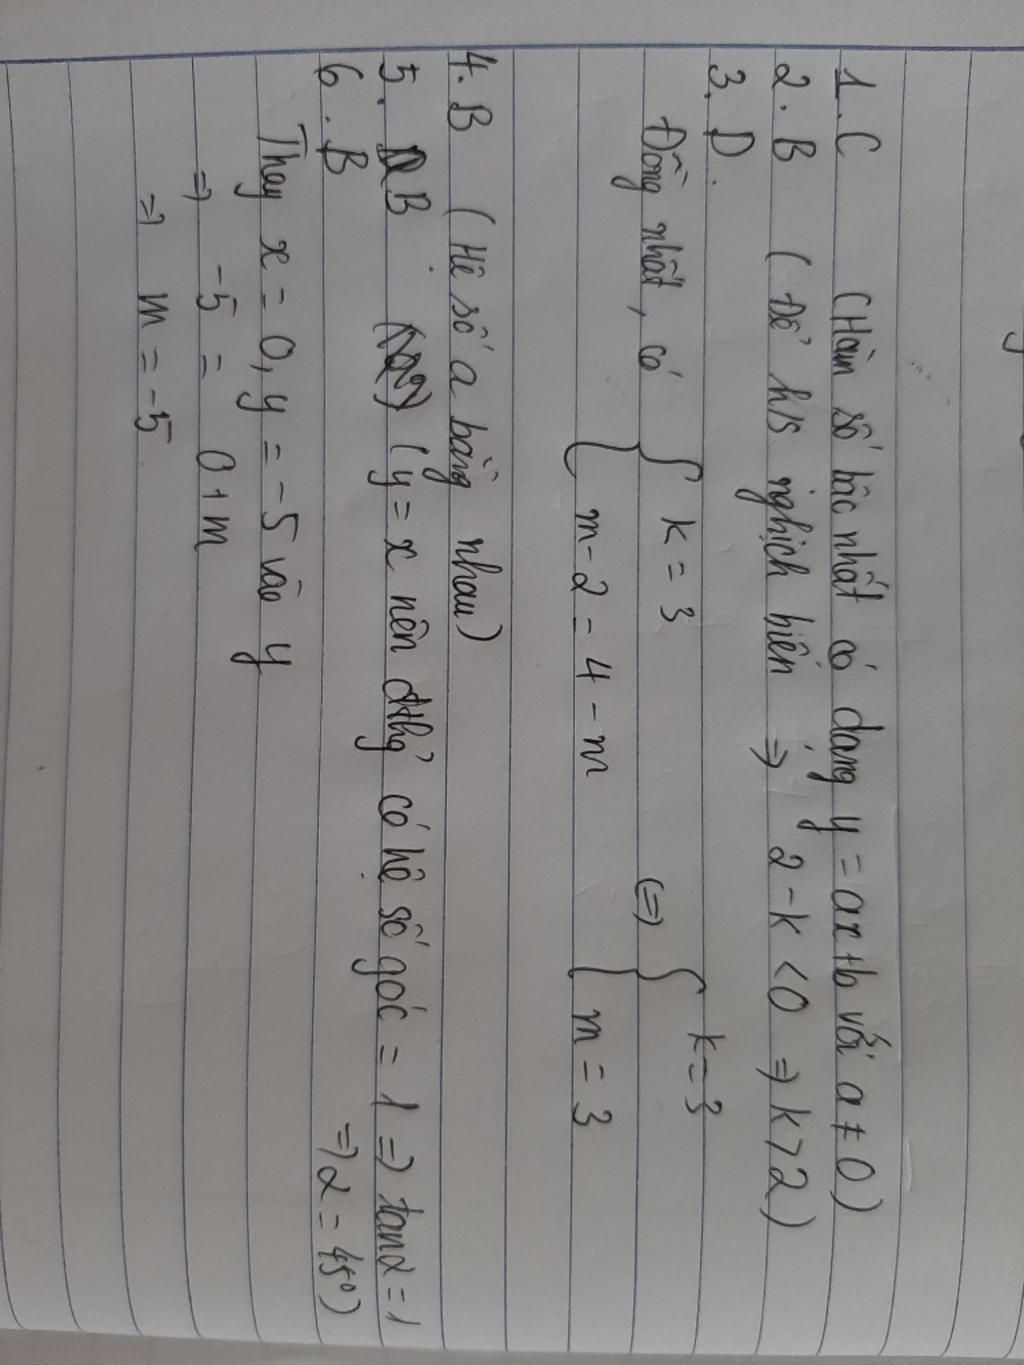 1. C (Hàm số bậc nhất có dạng y = ax + b với a ≠ 0)
2. B (Để h/s nghịch biến => 2 - k < 0 => k > 2)
3. D.
Đồng nhất, có { k = 3 (=) { k = 3
{ m - 2 = 4 - m { m = 3
4. B (Hệ số a bằng nhau)
5. B (y = x nên đthg có hệ số góc = 1 => tanα = 1
=> α = 45°)
6. B
Thay x = 0, y = -5 vào y
=> -5 = 0 + m
=> m = -5